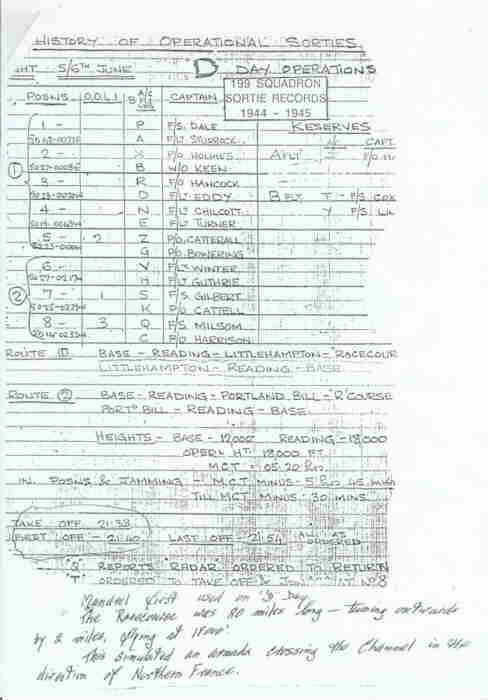 HISTORY OF OPERATIONAL SORTIES.
5/6TH JUNE D DAY OPERATIONS
199 SQUADRON
SORTIE RECORDS
1944 - 1945
POSNS D.O.L.I A/C CAPTAIN RESERVES
1 - P F/S. DALE CAPT.
A F/LT STURROCK.
2 - X P/O HOLMES. A FLT
B W/O KEEN.
① 3 - R P/O HANCOCK
D F/LT. EDDY B FLT T - F/S COX
4 - N F/LT CHILCOTT. Y F/S
E F/LT TURNER
5 - 2 Z P/O. CATTERALL
G P/O. BOWERING
6 - V F/LT WINTER
H F/LT. GUTHRIE.
② 7 - 1 S F/S. GILBERT
K P/O CATTELL
8 - 3 Q F/S. MILSOM.
C P/O HARRISON.
ROUTE ① BASE - READING - LITTLEHAMPTON - 'RACECOUR
LITTLEHAMPTON - READING - BASE
ROUTE ② BASE - READING - PORTLAND BILL - 'R' COURSE
PORTD BILL - READING - BASE.
HEIGHTS - BASE - 12,000' READING - 18,000
OPERL HT. 18,000 FT.
M.C.T. - 05.20 hrs.
IN. POSNS & JAMMING - M.C.T. MINUS - 5 hrs 45 mins
TILL MCT MINUS - 30 MINS.
TAKE OFF 21:33
LAST OFF - 21:54 ALL AT ORDERED
'Q' REPORTS 'RADAR' ORDERED TO RETURN
'T' ORDERED TO TAKE OFF & JOIN AT No 8
Mandrel first used on 'D' Day.
The Racecourse was 80 miles long - turning outwards
by 2 miles, flying at
This simulated an armada crossing the Channel in the
direction of Northern France.